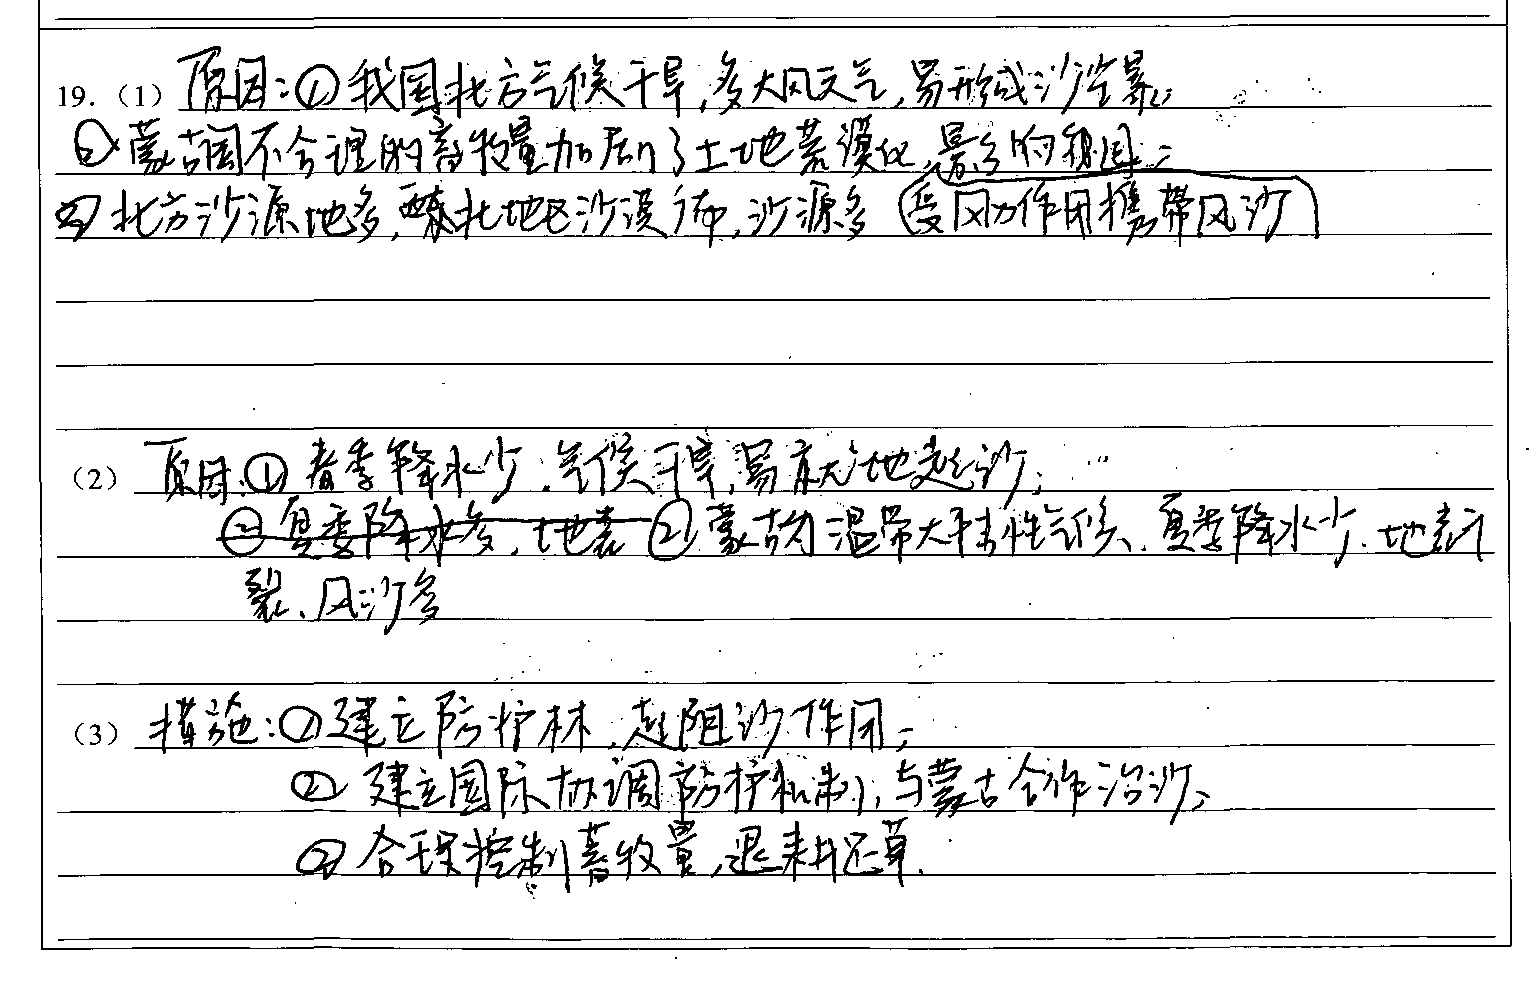 19.（1）原因：①我国北方气候干旱，多大风天气，易形成沙尘暴；
②蒙古国不合理的畜牧量加剧了土地荒漠化，
③北方沙源地多，西北地区沙漠广布，沙源多 受风力作用携带风沙
（2）原因：①春季降水少，气候干旱，易就地起沙；
②夏季降水多，地表 ②蒙古为温带大陆性气候，夏季降水少，地表干
裂、风沙多
（3）措施：①建立防护林，起阻沙作用；
②建立国际协调防护机制，与蒙古合作治沙；
③合理控制畜牧量，退耕还草.